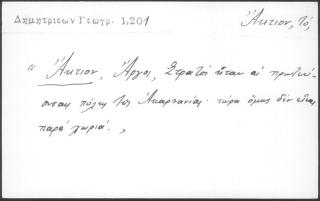 Δημητριέων Γεωγρ. 1,201
Ἄκτιον, τό,
“ Ἄκτιον, Ἄργος, Στρατός ἦταν αἱ πρωτεύ-
ουσαι πόλεις τῆς Ἀκαρνανίας· τώρα ὅμως δὲν εἶναι
παρά χωριά. „